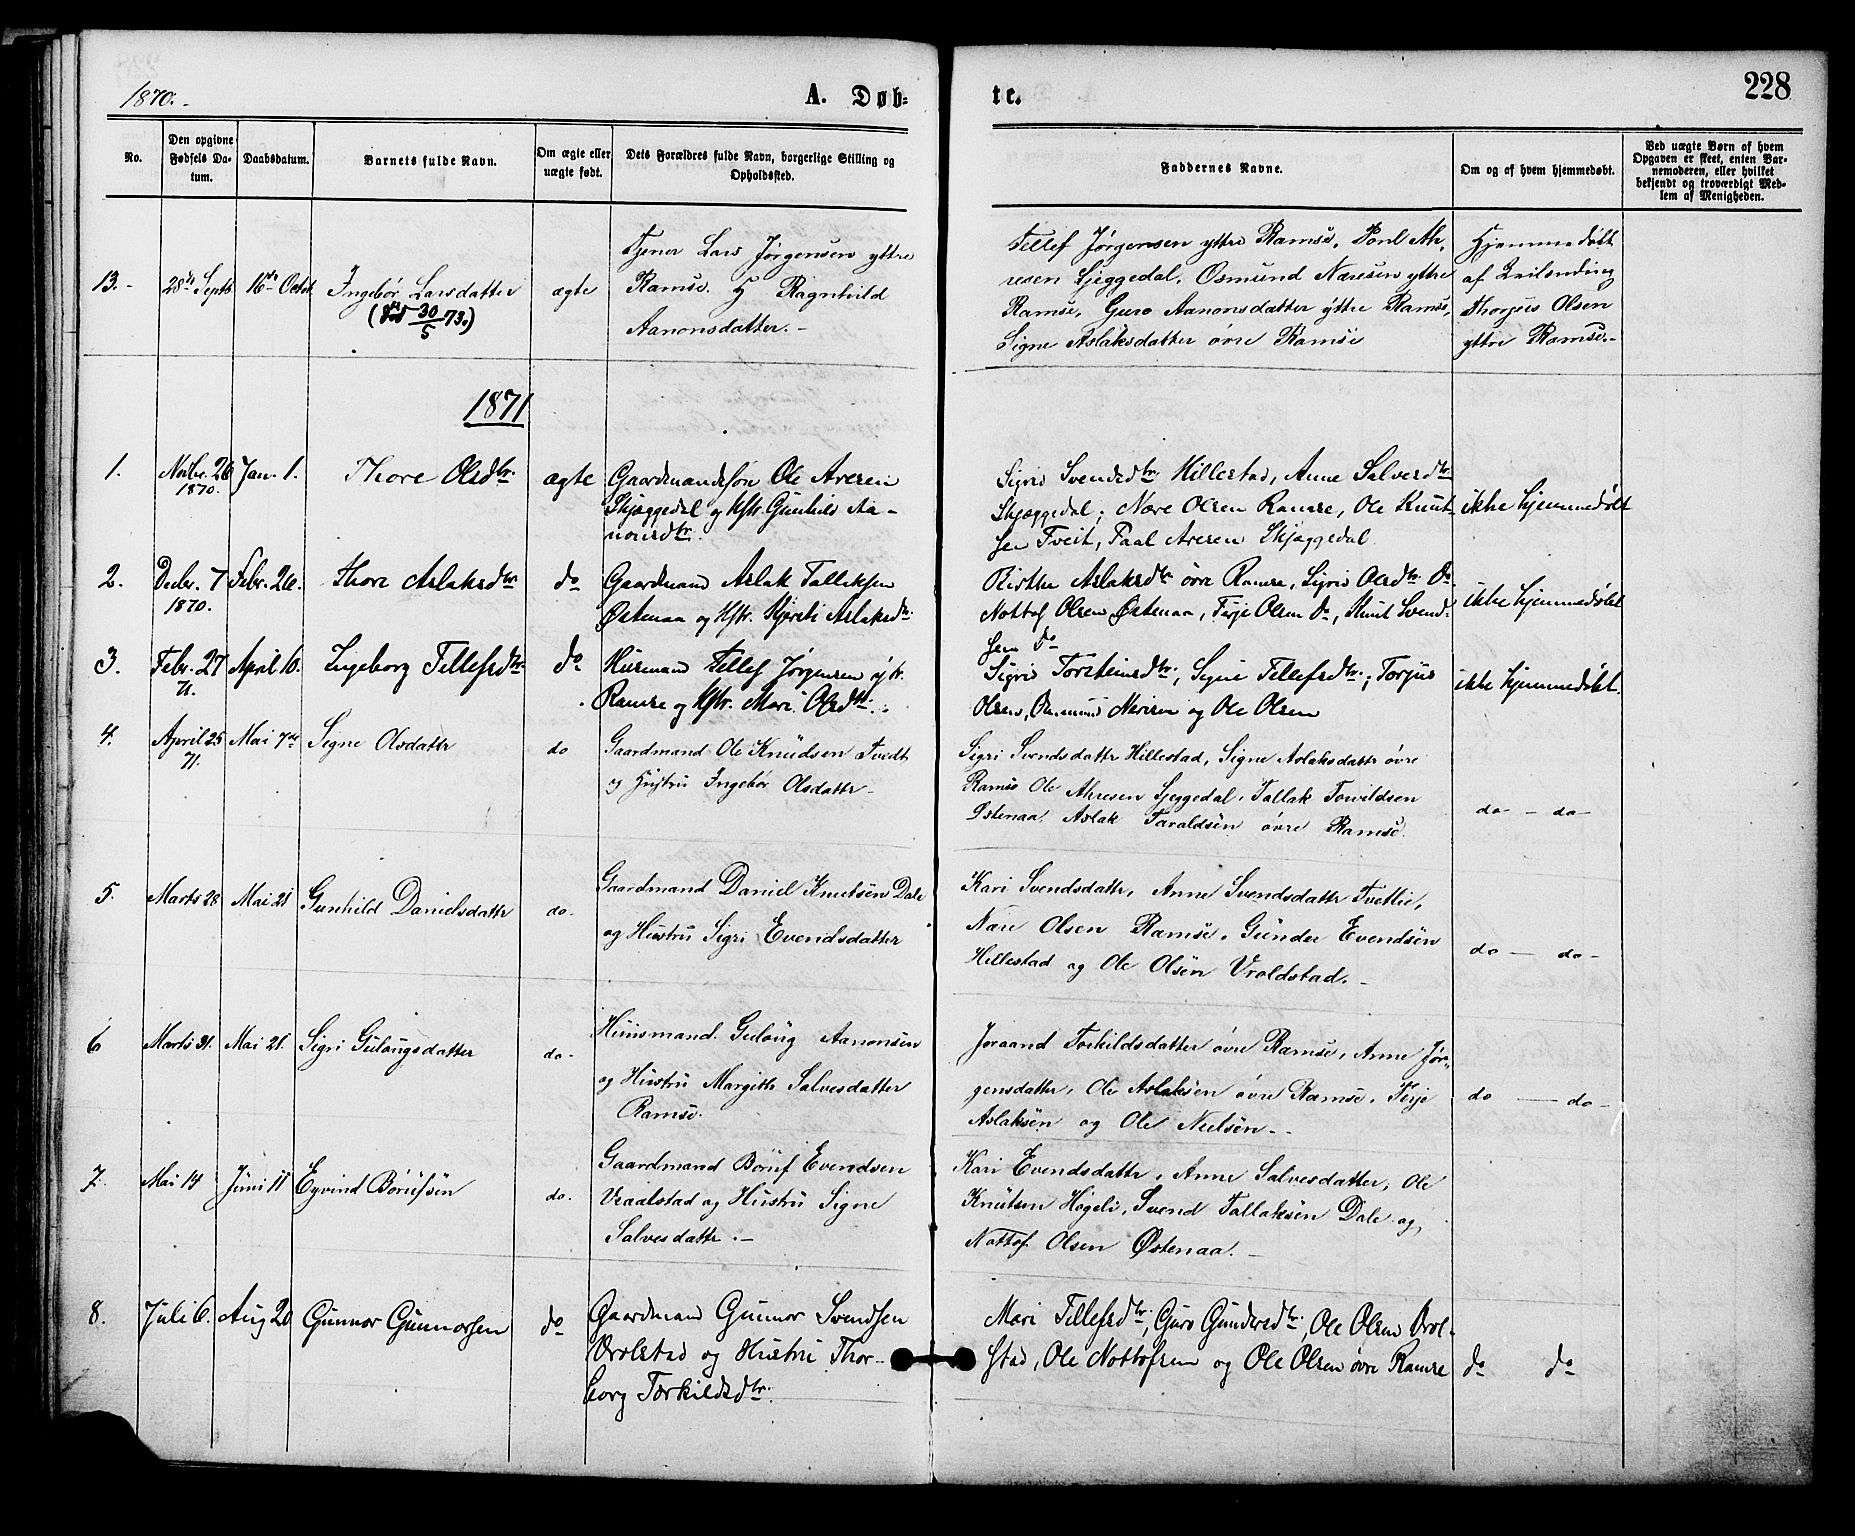 1870.
A. Døb=
te.
228
No.
Den opgivne Fødsels Da-tum.
Daabsdatum.
Barnets fulde Navn.
Om ægte eller uægte født.
Dets Forældres fulde Navn, borgerlige Stilling og Opholdssted.
Faddernes Navne.
Om og af hvem hjemmedøbt.
Ved uægte Børn af hvem Opgaven er skeet, enten Bar-nemoderen, eller hvilket bekjendt og troværdigt Med-lem af Menigheden.
Tjener Lars Jørgensen yttre
13. 28de Septb 16de Octob Ingebor Larsdatter ægte Ramse. H Ragnhild
(død 30/5 73.)
Aanonsdatter.
Tellef Jørgensen yttre Ramse, Poul Ah-
resen Sjeggedal, Osmund Næresen yttre
Ramse, Guro Aanonsdatter yttre Ramse,
Signe Aslaksdatter øvre Ramse
Hjemmedøbt
af
Thorjus Olsen
yttre Ramse.
1871
1. Novbr. 26 1870. Jan. 1. Thore Olsdtr. ægte Gaardmandssøn Ole Aresen
Skjæggedal og Hstr. Gunhild Aa-
nonsdtr.
Sigrid Svendsdtr. Hillestad, Anne Salvesdtr
Skjæggedal; Nære Olsen Ramse, Ole Knut-
sen Tveit, Paal Aresen Skjæggedal
ikke hjemmedøbt
2. Decbr. 7 1870. Febr. 26. Thore Aslaksdtr do Gaardmand Aslak Tallaksen
Østenaa og Hstr. Kjersti Aslaksdtr.
Birthe Aslaksdtr øvre Ramse, Sigrid Olsdtr. Do
Nottof Olsen Østenaa, Terje Olsen Do, Knut Svend-
sen Do
ikke hjemmedøbt
3. Febr. 27 71. April 10. Ingeborg Tellefsdtr. do Husmand Tellef Jørgensen ytr.
Ramse og Hstr. Mari Olsdtr.
Sigrid Torsteinsdtr, Signe Tellefsdtr.; Torjus
Olsen, Osmund Næresen og Ole Olsen
ikke hjemmedøbt.
4. April 25 71. Mai 7de Signe Olsdattr do Gaardmand Ole Knudsen Tvedt
og Hustru Ingebør Olsdattr
Sigri Svendsdattr Hillestad, Signe Aslaksdattr øvre
Ramse Ole Ahresen Sjeggedal, Tallak Torvildsen
Østenaa, Aslak Taraldsen øvre Ramse.
do — do
5. Marts 28 Mai 21 Gunhild Danielsdattr do Gaardmand Daniel Knutsen Dale
og Hustru Sigri Evendsdatter
Kari Svendsdattr, Anne Svendsdattr Tvetlie,
Nære Olsen Ramse, Gunder Evendsen
Hillestad og Ole Olsen Vroldstad.
do — do
6 Marts 31. Mai 21. Sigri Gulougsdatter do Huusmand Guloug Aanonsen
og Hustru Margith Salvesdatter
Ramse.
Joraand Torkildsdatter øvre Ramse, Anne Jør-
gensdattr, Ole Aslaksen øvre Ramse, Terje
Aslaksen og Ole Nielsen
do — do
7. Mai 14 Juni 11 Eyvind Børufsen do. Gaardmand Børuf Evendsen
Vraalstad og Hustru Signe
Salvesdattr.
Kari Evendsdattr, Anne Salvesdatter, Ole
Knutsen Høgeli, Svend Tallaksen Dale og
Nottof Olsen Østenaa.
8. Juli 6. Aug 20 Gunnar Gunnarsen do Gaardmand Gunnar Svendsen
Vrolstad og Hustru Thor-
borg Torkildsdtr.
Mari Tellefsdtr, Guro Gundersdtr, Ole Olsen Vrol-
stad, Ole Nottofsen og Ole Olsen øvre Ramse
do do